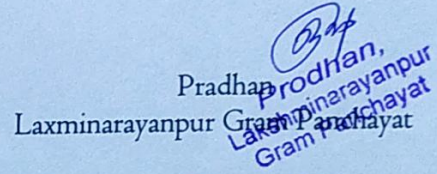 Pradhan
Laxminarayanpur Gram Panchayat
Prodhan,
Lakshminarayanpur
Gram Panchayat